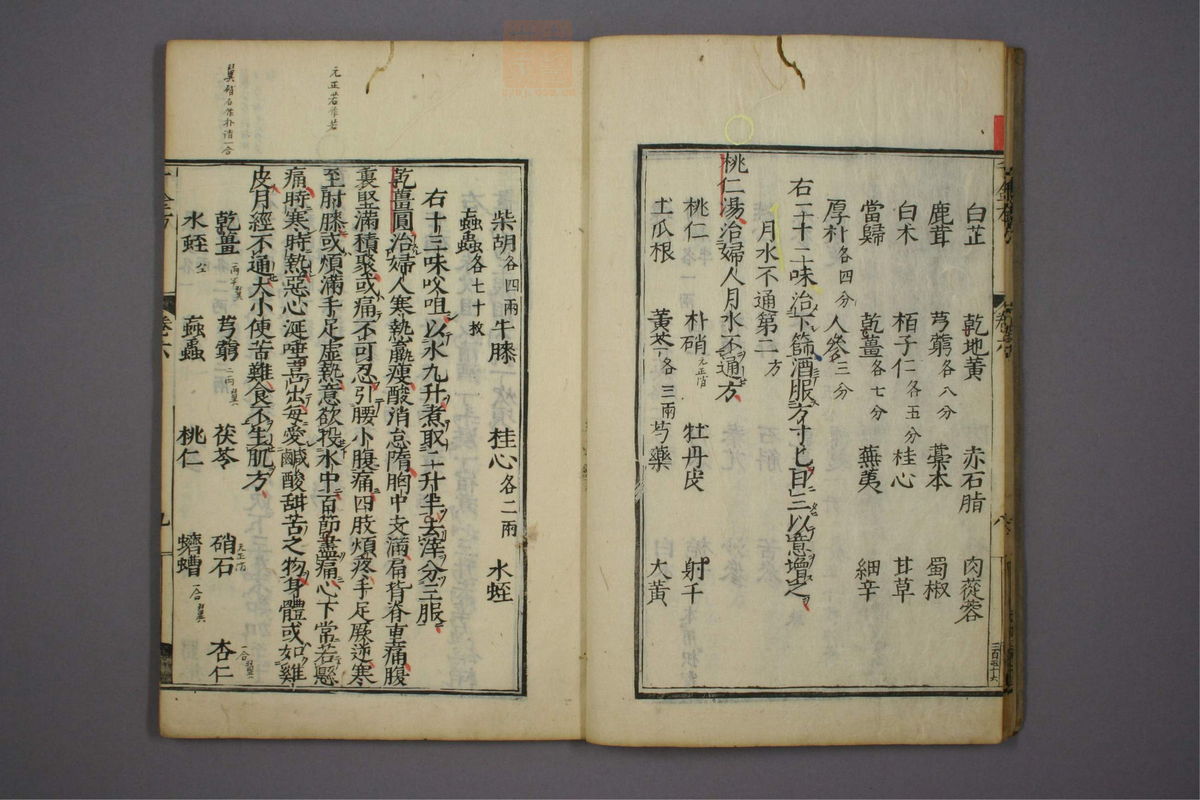 白芷 乾地黃 赤石脂 肉蓯蓉
鹿茸 芎藭各八分 藁本 蜀椒
白木 栢子仁各五分 桂心 甘草
當歸 乾薑各七分 蕪荑 細辛
厚朴各四分 人參三分
右二十二味治下篩酒服方寸匕日三以意增之
月水不通第二方
桃仁湯治婦人月水不通方
桃仁 朴硝 牡丹皮 射干
土瓜根 黃芩各三兩 芍藥 大黃
柴胡各四兩 牛膝 桂心各二兩 水蛭
蝱蟲各七十枚
右十三味㕮咀以水九升煮取二升半去滓分三服
乾薑圓治婦人寒熱羸瘦酸消怠隋胸中支滿肩背脊重痛腹
裏堅滿積聚或痛不可忍引腰小腹痛四肢煩疼手足厥逆寒
至肘膝或煩滿手足虛熱意欲投水中百節盡痛心下常若懸
痛時寒時熱惡心涎唾喜出每愛鹹酸甜苦之物身體或如雞
皮月經不通大小便苦難食不生肌方
乾薑 芎藭 茯苓 硝石 杏仁
水蛭 蝱蟲 桃仁 蠐螬
卷六
卷六
九
元正若作若
翼硝石作朴硝一合